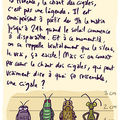 à l'ombre, le chant des cigales,
c'est pas une légende. Il est
omniprésent à partir de 9h le matin
jusqu'à 21h quand le soleil commence
à disparaître. Et à ce moment là,
on se rappelle brutalement que le silence,
le vrai, ça existe! Mais si on connait
par cœur le chant des cigales, qui peut
vraiment dire à quoi ça ressemble,
une cigale ?
3 cm
2 cm